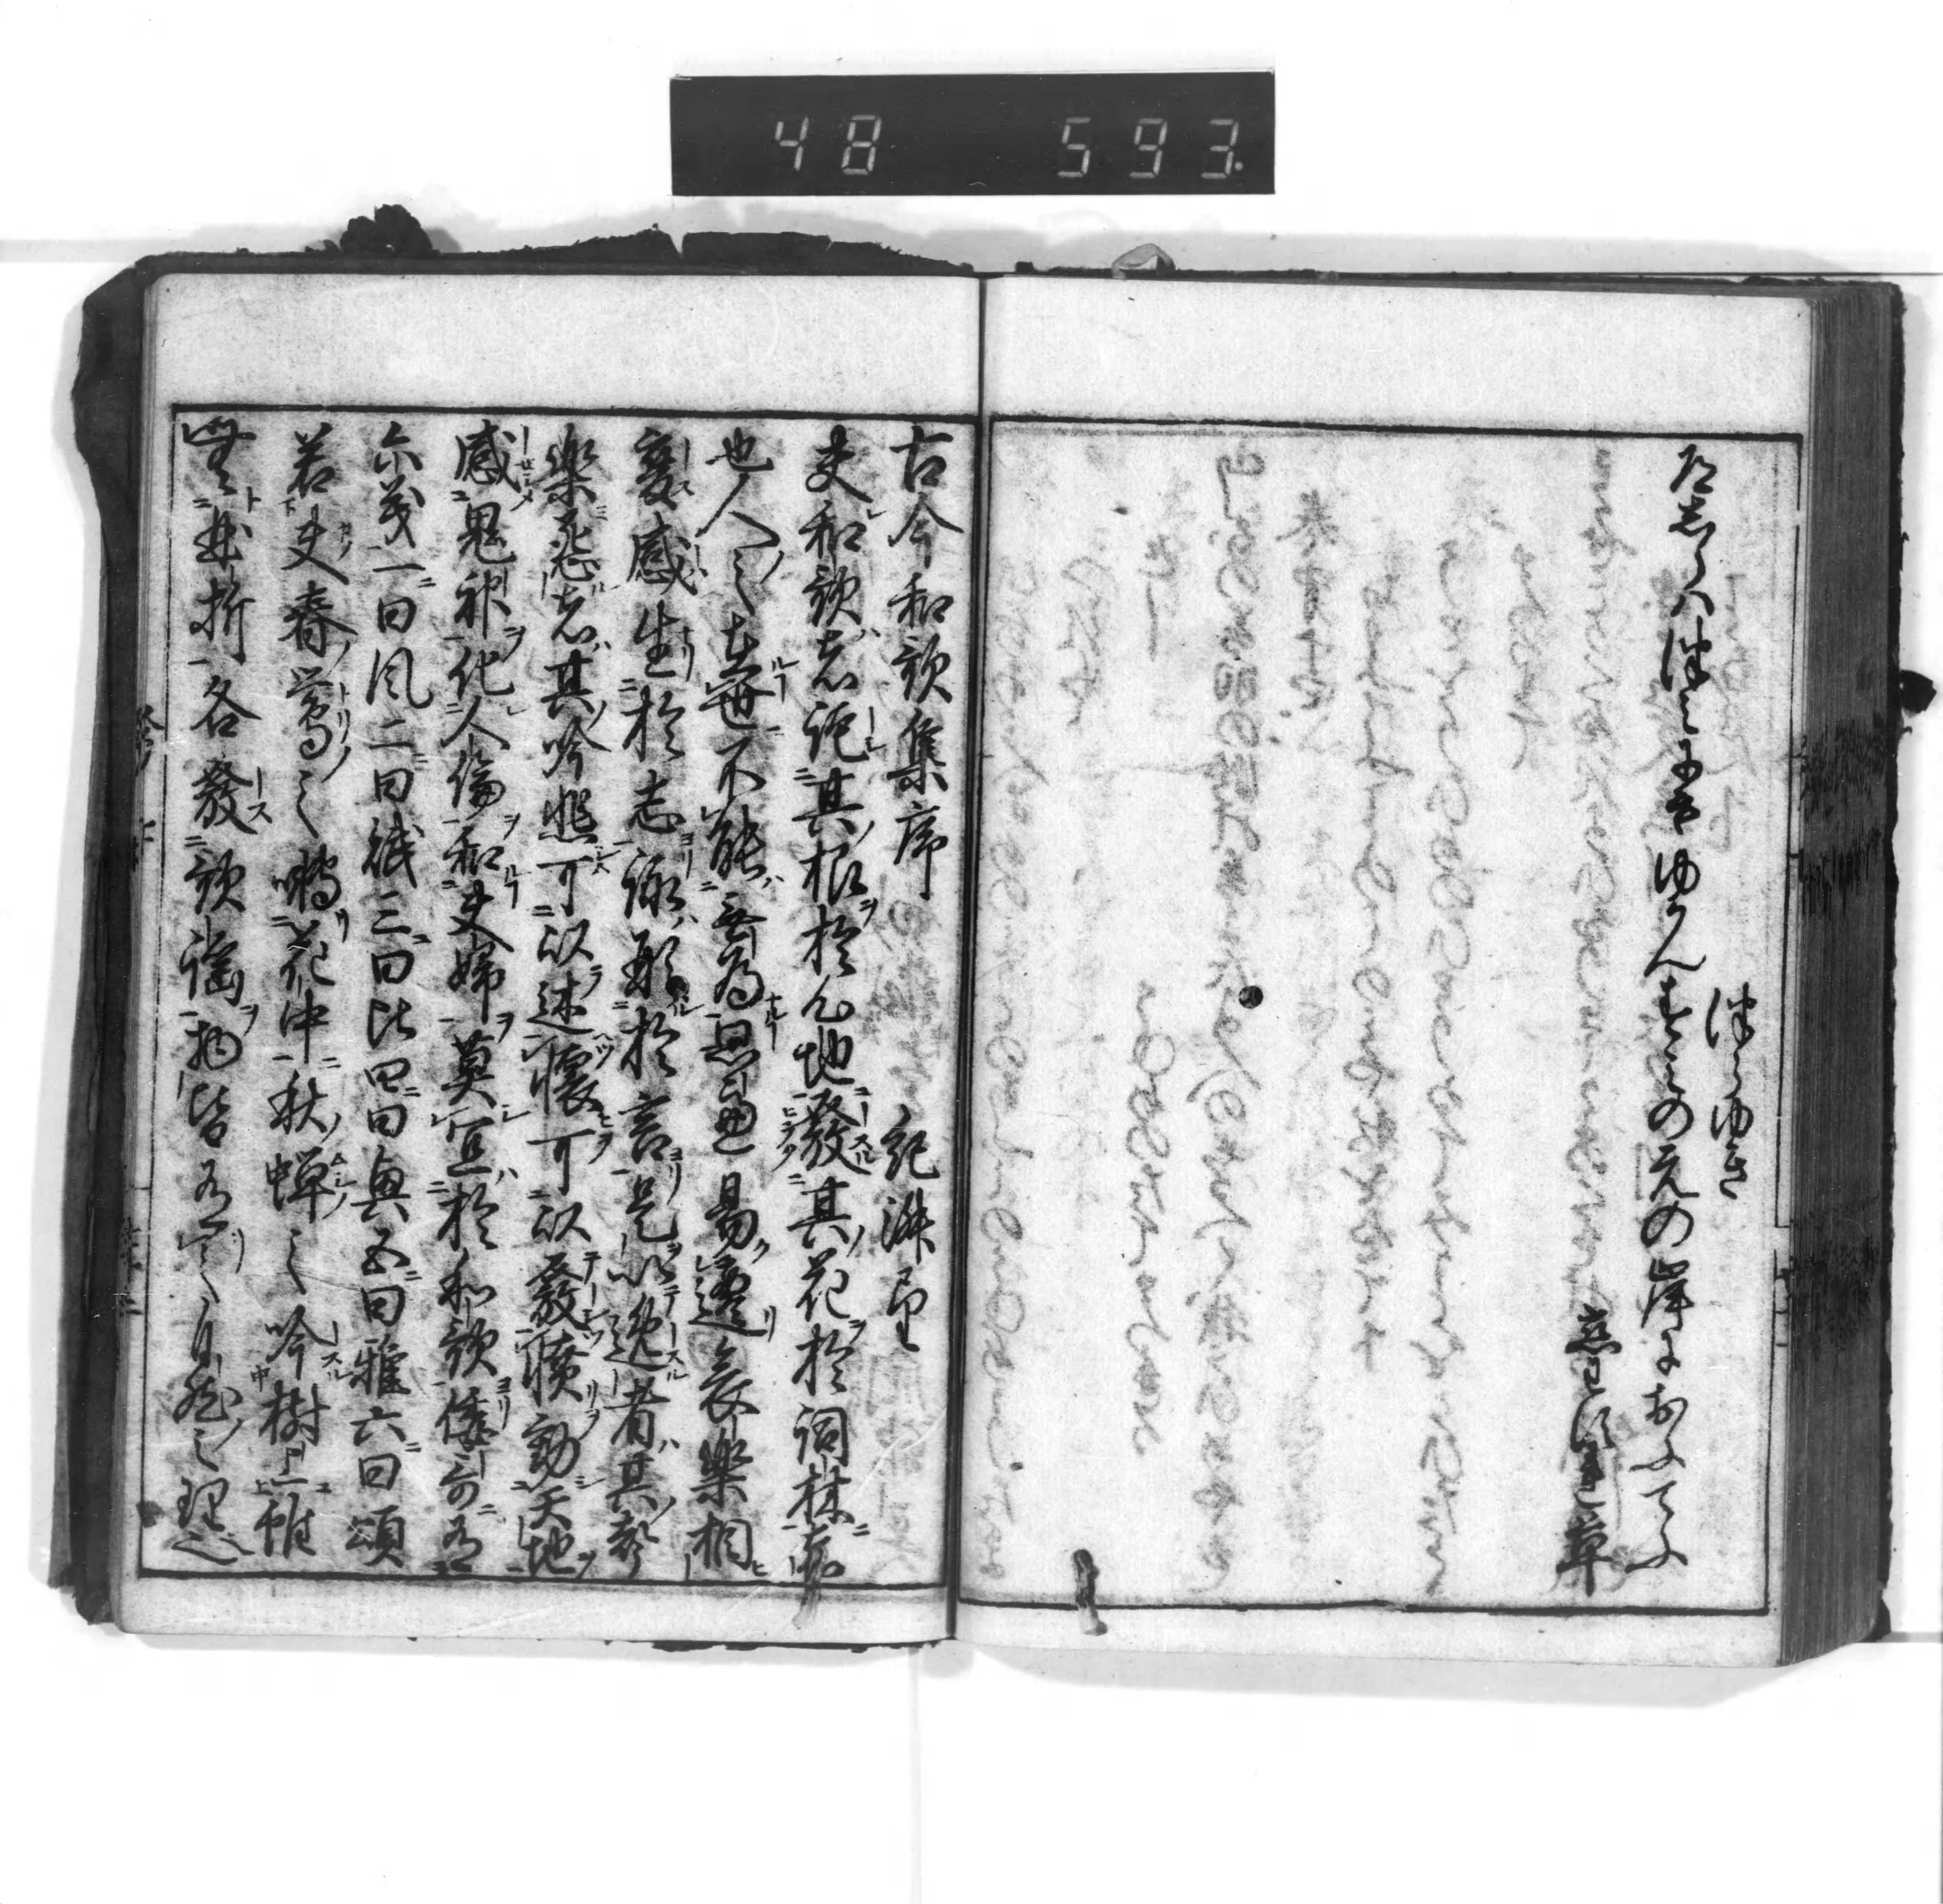 48 593
つらゆき
道しらはつみにもゆかんすみのえの岸におふてふ
恋わすれ草
古今和歌集序 紀淑望
夫和歌者託其根於心地發其花於詞林者
也人之在世不能無為思慮易遷哀樂相
變感生於志詠形於言是以逸者其聲
樂怨者其吟悲可以述懐可以發憤動天地
感鬼神化人倫和夫婦莫宜於和歌倭哥有
六義一曰风二曰賦三曰比四曰興五曰雅六曰頌
若夫春鶯之囀花中秋蝉之吟樹上雖
無曲折各發歌謡物皆有之自然之理也